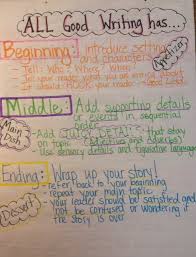 ALL Good Writing has...?
Beginning: Introduce setting
and characters
Appetizer
- Tell: Who? Where? When?
- Let your reader know what you are writing about
- It should HOOK your reader
Middle: Add supporting details
or events in sequential
order
Main Dish
- Add JUICY DETAILS that stay
on topic (adjectives and adverbs)
- Use sensory details and figurative language
Ending: Wrap up your story!
- refer back to your beginning
- repeat your main topic
Dessert
- your reader should be satisfied and
not be confused or wondering if
the story is over